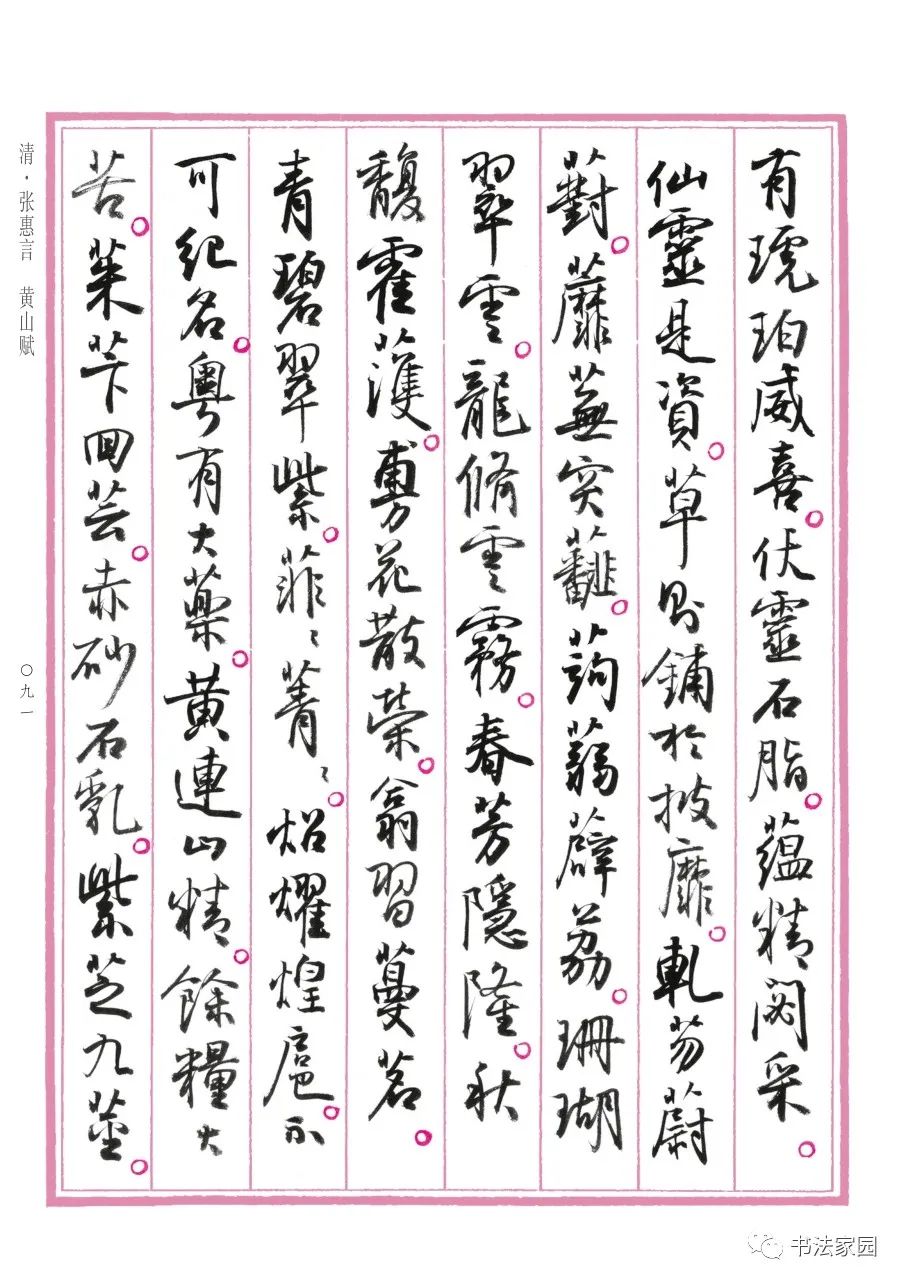 有琥珀威喜。伏靈石脂。蘊精閟采。
仙靈是資。草則鋪於披靡。軋芴蔚
薱。蘼蕪突虉。蒟蒻薜荔。珊瑚
翠雲。龍脩雲霧。春芳隱隆。秋
馥霍蒦。旉花散榮。翕習蔓茗。
青碧翠紫。菲〻菁〻。炤燿煌扈。不
可紀名。粵有大藥。黃連山精。餘糧大
苦。茱苄回芸。赤砂石乳。紫芝九莖。
清·张惠言 黄山赋
〇九一
书法家园